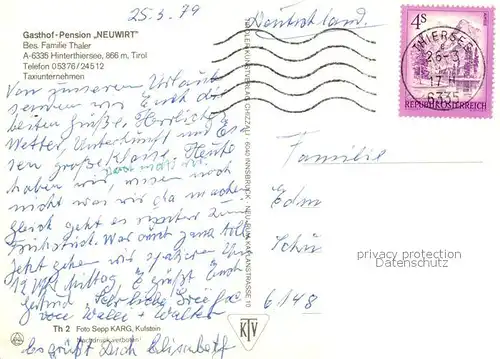 25.3.79
Deutschland.
Gasthof-Pension „NEUWIRT"
Bes. Familie Thaler
A-6335 Hinterthiersee, 866 m, Tirol
Telefon 05376/24512
Taxiunternehmen
4s
THIERSEE
26.-3
17
6335
REPUBLIK ÖSTERREICH
Von unserem Urlaub
senden wir Euch die
besten Grüße. Herrliches
Wetter, Unterkunft und Es-
sen große Klasse. Heute
haben wir, wissen noch
nicht was wir da machen
gleich geht es runter zum
Frühstück. War auch ganz toll
jetzt gehen wir
Mittag Es grüßt Euch
herzliche Grüße
von Willi + Walter
Es grüßt Dich Elisabeth
Familie
Edm
Schü
6148
privacy protection
Datenschutz
TIROLER KUNSTVERLAG CHIZZALI · 6040 INNSBRUCK - NEU-RUM, KAPLANSTRASSE 10
KTV
Th 2 Foto Sepp KARG, Kufstein
Nachdruck verboten!